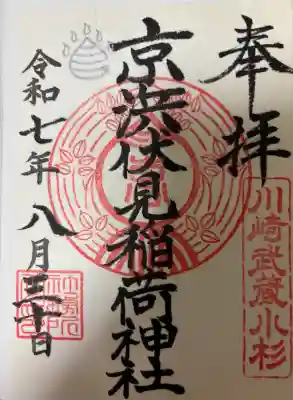 奉拝
川崎武蔵小杉
京浜伏見稲荷神社
令和七年八月三十日